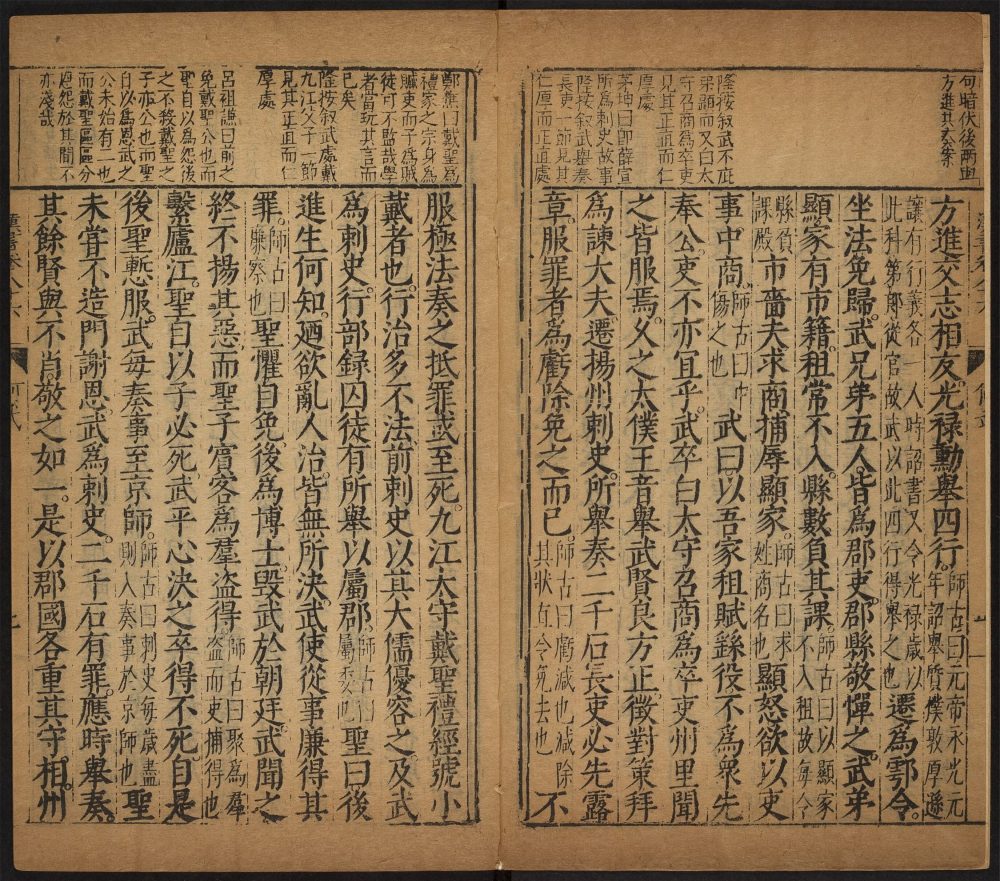 句暗伏後兩
方進其奏案
隆按叙武不庇
弟顯而又白太
守召商爲卒吏
見其正直而仁
厚處
茅坤曰卽薛宣
所爲刺史故事
隆按叙武舉奏
長吏一節見其
仁厚而正直處
方進交志相友光祿勳舉四行師古曰元帝永光元年詔舉質樸敦厚遜
讓有行義各一人時詔書又令光祿歲以此科第郎從官故武以此四行得舉之也遷爲鄠令
坐法免歸武兄弟五人皆爲郡吏郡縣敬憚之武弟
顯家有市籍租常不入縣數負其課師古曰以顯家不入租故每令
縣負課殿市嗇夫求商捕辱顯家師古曰求姓商名也顯怒欲以吏
事中商師古曰中傷之也武曰以吾家租賦繇役不爲衆先
奉公吏不亦宜乎武卒白太守召商爲卒吏州里聞
之皆服焉乆之太僕王音舉武賢良方正徵對策拜
爲諫大夫遷揚州刺史所舉奏二千石長吏必先露
章服罪者爲虧除免之而已師古曰虧減也減除其狀直令免去也不
鄭樵曰戴聖爲
禮家之宗身爲
贓吏而子爲賊
徒可不監哉學
者當玩其言而
已矣
隆按叙武處戴
九江父子一節
見其正直而仁
厚處
呂祖謙曰前之
免戴聖公也而
聖自以爲怨後
之不殺戴聖之
子亦公也而聖
自以爲恩武之
公未始有二也
而戴聖區區分
恩怨於其間不
亦淺哉
服極法奏之抵罪或至死九江太守戴聖禮經號小
戴者也行治多不法前刺史以其大儒優容之及武
爲刺史行部録囚徒有所舉以屬郡師古曰屬委也聖曰後
進生何知廼欲亂人治皆無所決武使從事廉得其
罪師古曰廉察也聖懼自免後爲博士毀武於朝廷武聞之
終不揚其惡而聖子賓客爲羣盜得師古曰聚爲羣盜而吏捕得也
繫廬江聖自以子必死武平心決之卒得不死自是
後聖慙服武每奏事至京師師古曰刺史每歲盡則入奏事於京師也聖
未嘗不造門謝恩武爲刺史二千石有罪應時舉奏
其餘賢與不肖敬之如一是以郡國各重其守相州